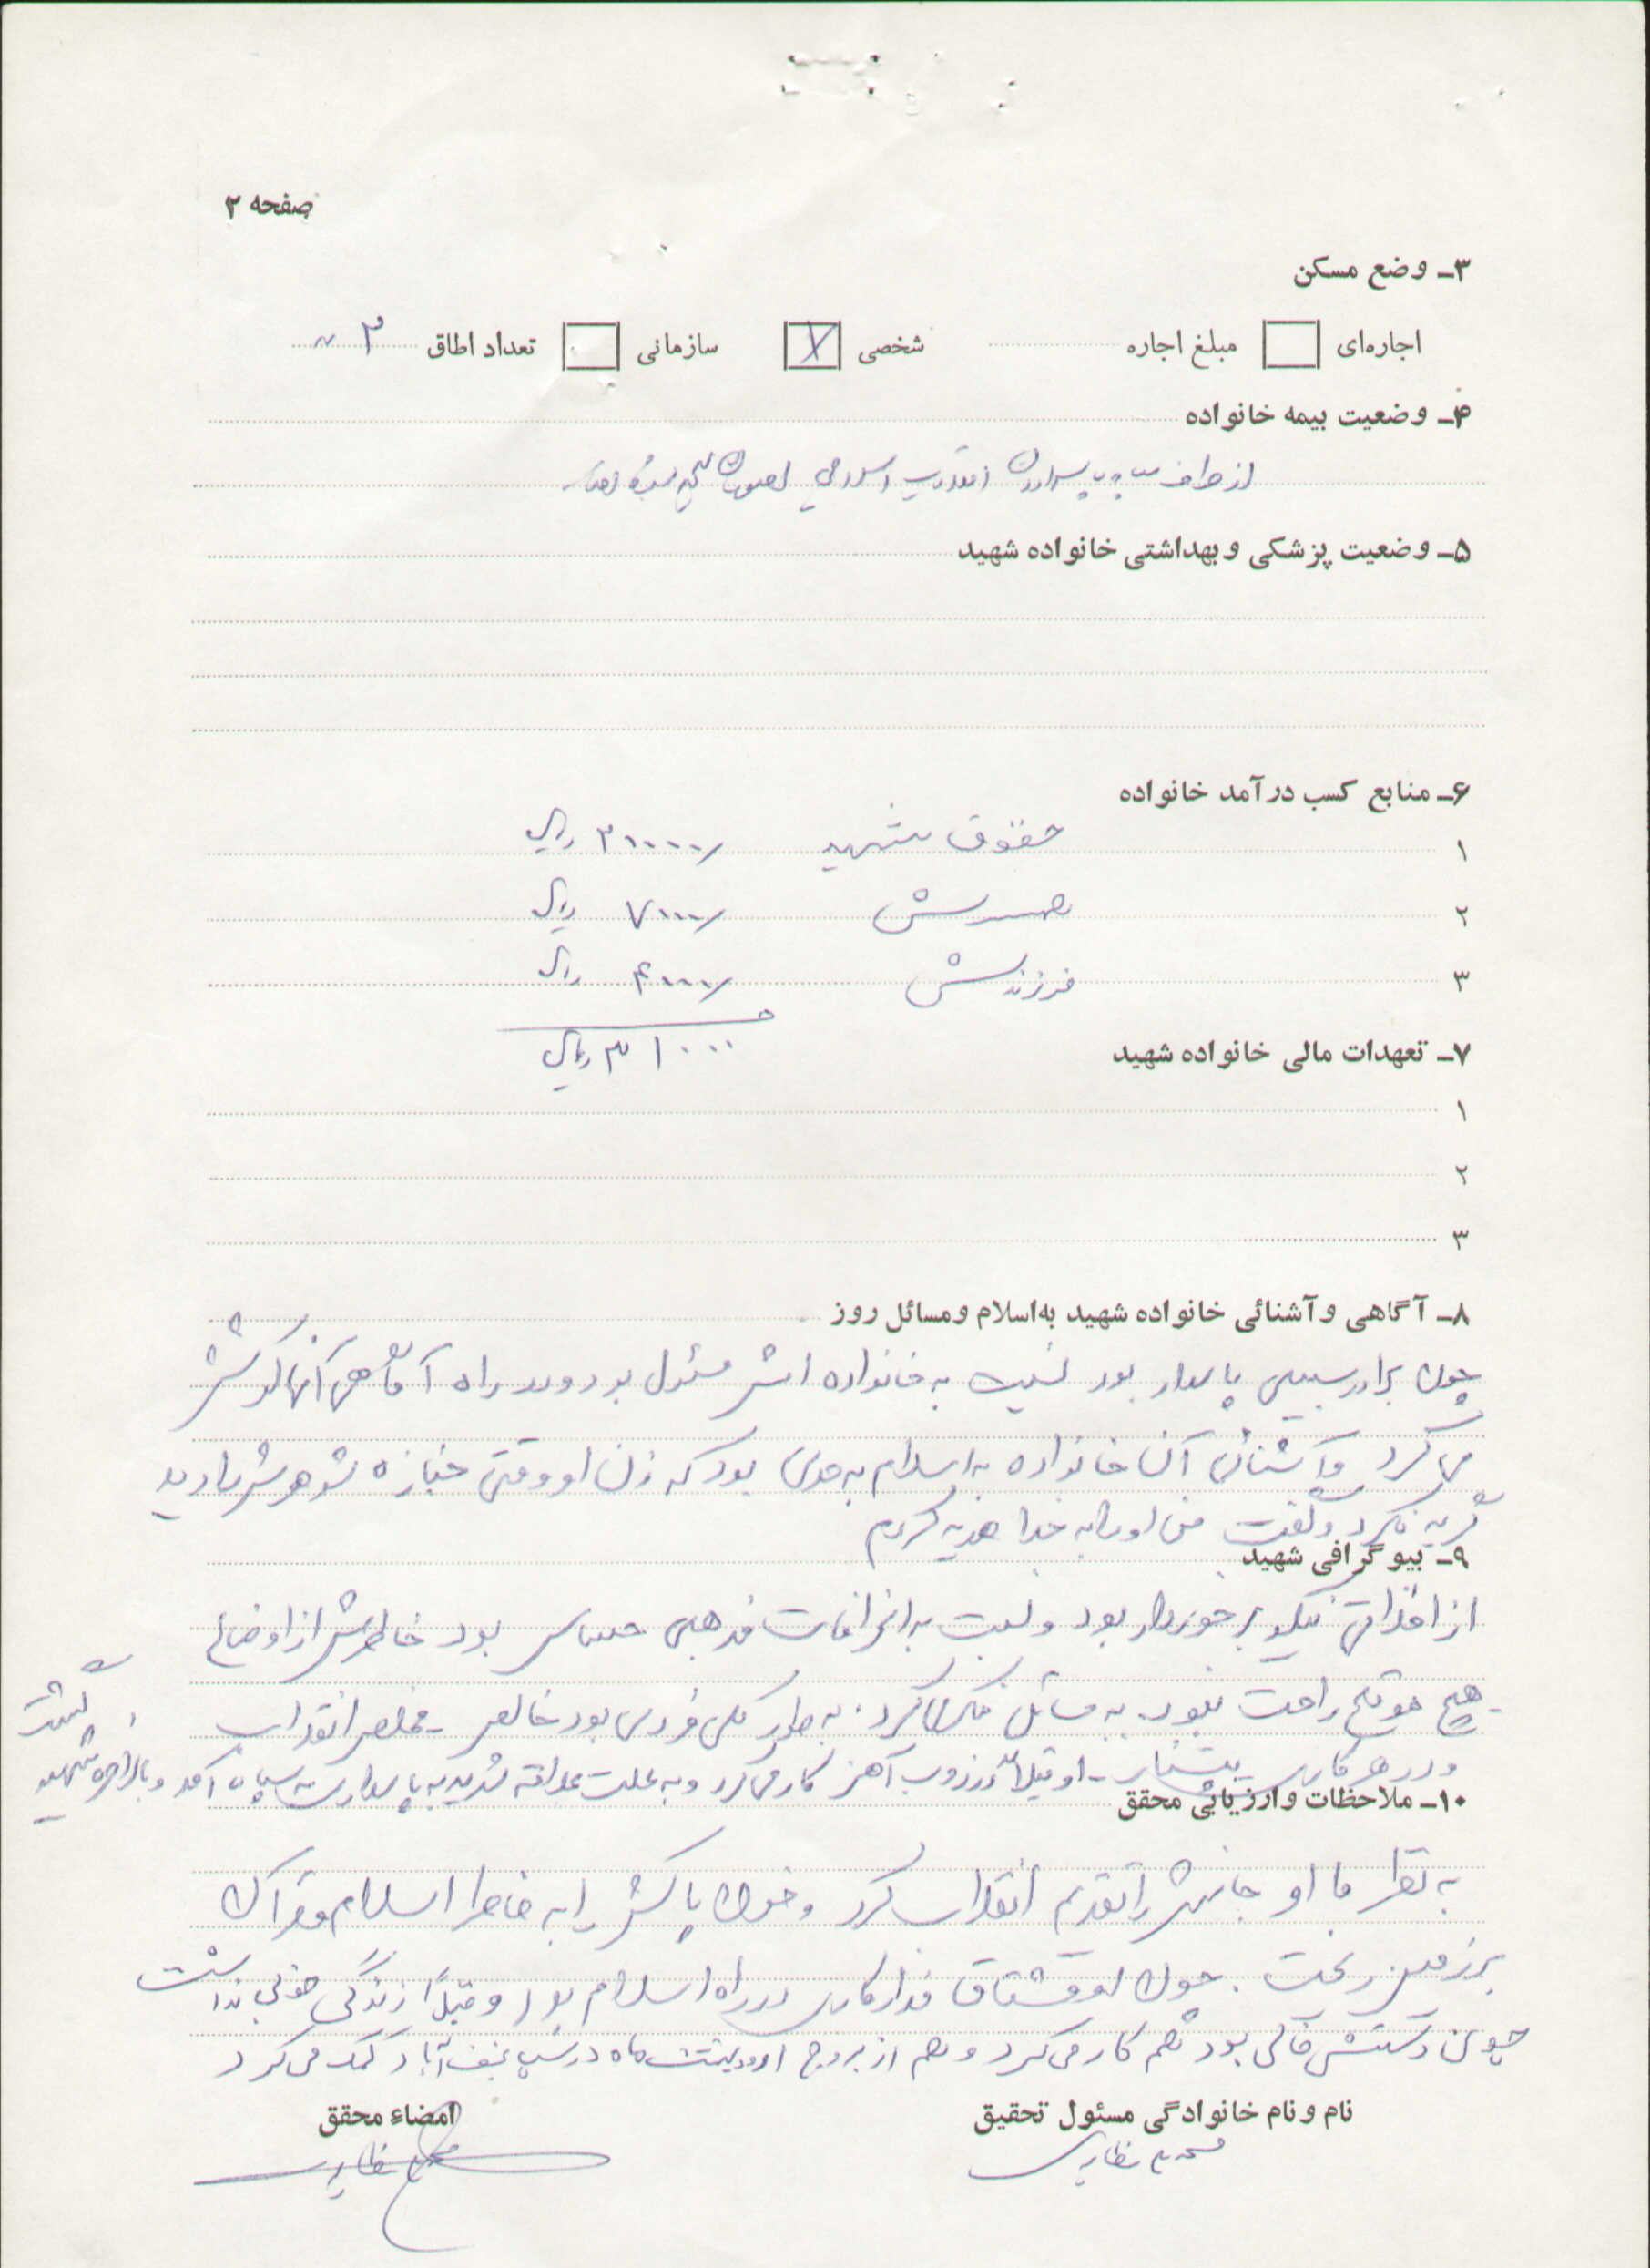 صفحه ۲
۳ـ وضع مسکن
اجاره‌ای مبلغ اجاره شخصی X سازمانی تعداد اطاق ۳
۴ـ وضعیت بیمه خانواده
از طرف سپاه پاسداران انقلاب اسلامی
۵ـ وضعیت پزشکی و بهداشتی خانواده شهید
۶ـ منابع کسب درآمد خانواده
۱ حقوق شهید ۲۰۰۰۰/ ریال
۲ همسرش ۷۰۰۰/ ریال
۳ فرزندش ۴۰۰۰/ ریال
۳۱۰۰۰ ریال
۷ـ تعهدات مالی خانواده شهید
۱
۲
۳
۸ـ آگاهی و آشنائی خانواده شهید به‌اسلام و مسائل روز
چون برادر پاسدار بود نسبت به خانواده اش مسئول بود و در راه آگاهی آنها کوشش
می کرد و آشنائی آن خانواده به اسلام به حدی بود که زن او وقتی جنازه شوهرش را دید
گریه نکرد و گفت من او را به خدا هدیه کردم
۹ـ بیوگرافی شهید
از اخلاق نیکو برخوردار بود و نسبت به انحرافات مذهبی حساس بود خاطرش از اوضاع
هیچ موقع راحت نبود. به مسائل فکر میکرد. به طور کلی فردی بود خالص - مخلص انقلاب
و در هر کاری پیشتاز - او قبلاً در ذوب آهن کار می کرد و به علت علاقه شدید به پاسداری به سپاه آمد و بالاخره شهید
گشت
۱۰ـ ملاحظات و ارزیابی محقق
به نظر ما او جانش را تقدیم انقلاب کرد و خون پاکش را به خاطر اسلام و قرآن
بر زمین ریخت. چون او مشتاق فداکاری در راه اسلام بود و قبلاً زندگی خوبی نداشت
چون دستش خالی بود هم کار می کرد و هم از اردیبهشت ماه در سپاه نجف آباد کمک می کرد
نام و نام خانوادگی مسئول تحقیق امضاء محقق